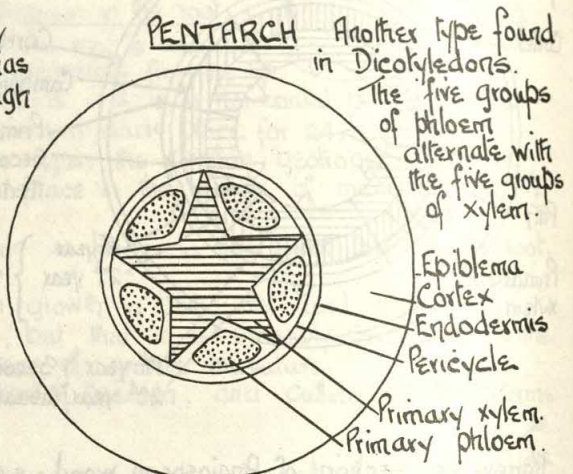 PENTARCH Another type found
in Dicotyledons.
The five groups
of phloem
alternate with
the five groups
of xylem.
Epiblema
Cortex
Endodermis
Pericycle
Primary xylem.
Primary phloem.
as
ugh